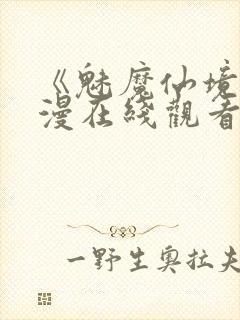 《魅魔仙境
漫在綫觀看
一野生奥拉夫